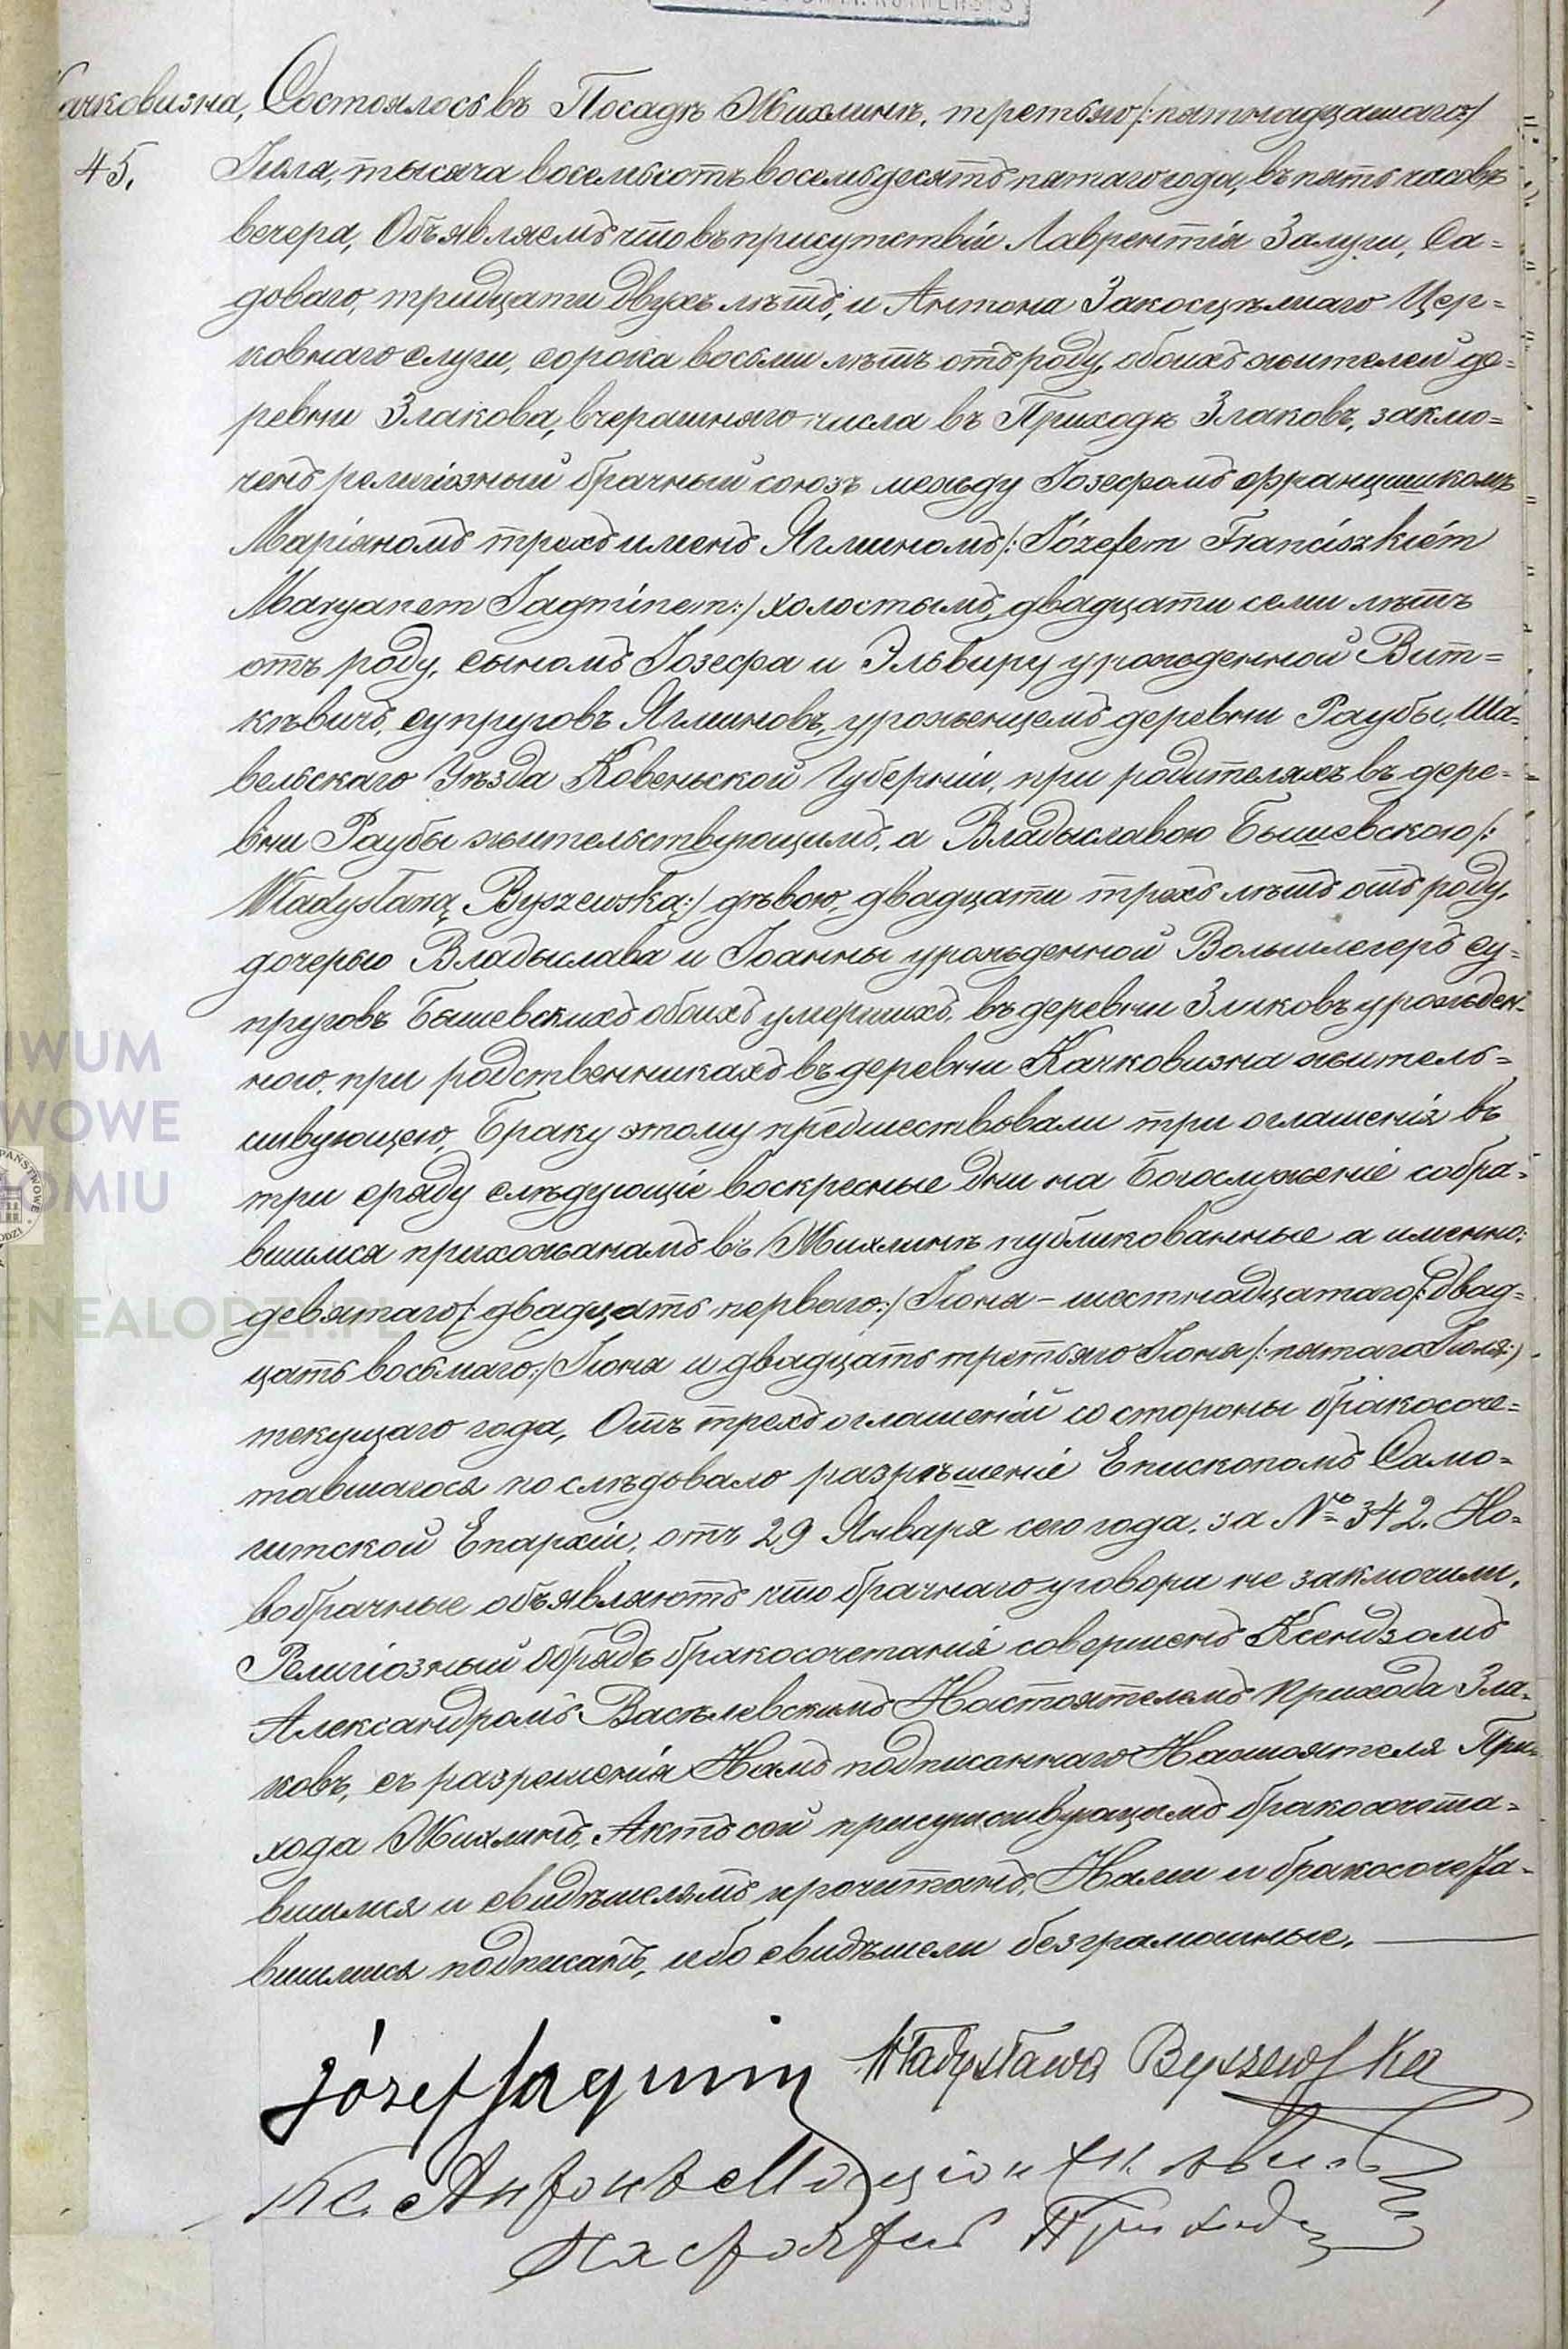 Качковизна, Состоялось въ Посадѣ Жихлинѣ, третьяго /:пятнадцатаго:/
45. Іюля, тысяча восемьсотъ восемьдесятъ пятаго года, въ пять часовъ
вечера, Объявляемъ что въ присутствіи Лаврентія Залуги, Са=
доваго, тридцати двухъ лѣтъ, и Антона Закосцѣлнаго Цер=
ковнаго слуги, сорока восьми лѣтъ отъ роду, обоихъ жителей де=
ревни Злакова, вчерашняго числа въ Приходѣ Злаковъ, заклю=
ченъ религіозный брачный союзъ между Іозефомъ Францишкомъ
Маріяномъ трехъ именъ Ягминомъ /: Józefem Franciszkiém
Maryanem Jagminem:/ холостымъ, двадцати семи лѣтъ
отъ роду, сыномъ Іозефа и Эльвиру урожденной Вит=
кѣвичъ, супруговъ Ягминовъ, урожденцемъ деревни Раубы, Ша=
вельскаго Уѣзда Ковеньской Губерніи, при родителяхъ въ дере=
вни Раубы жительствующимъ, а Владыславою Бышевскою /:
Władysławą Byszewską:/ дѣвою, двадцати трехъ лѣтъ отъ роду,
дочерью Владыслава и Іоанны урожденной Вольшлегеръ су=
пруговъ Бышевскихъ обоихъ умершихъ, въ деревни Злаковъ урожден=
ною, при родственникахъ въ деревни Качковизна житель=
ствующею, Браку этому предшествовали три оглашенія въ
три сряду слѣдующіе воскресные дни на Богослуженіе собра=
вшимся прихожанамъ въ Жихлинѣ публикованные а именно:
девятаго /: двадцать перваго:/ Іюня - шестнадцатаго /: двад=
цать восьмаго:/ Іюня и двадцать третьяго Іюня /: пятаго Іюля:/
текущаго года, Отъ трехъ оглашеній со стороны бракосоче=
тавшагося послѣдовало разрѣшеніе Епископомъ Само=
гитской Епархіи, отъ 29 Января сего года, за № 342. Но=
вобрачные объявляютъ что брачнаго уговора не заключили.
Религіозный обрядъ бракосочетанія совершенъ Ксендзомъ
Александромъ Васѣлевскимъ Настоятелемъ Прихода Зла=
ковъ, съ разрешенія Намъ подписаннаго Настоятеля При=
хода Жихлинъ, Актъ сей присутствующимъ бракосочета=
вшимся и свидѣтелямъ прочитанъ, Нами и бракосочета=
вшимися подписанъ, ибо свидѣтели безграмотные.
Józef Jagmin Władysława Byszewska
Кс. Антонъ
Настоятель Прихода